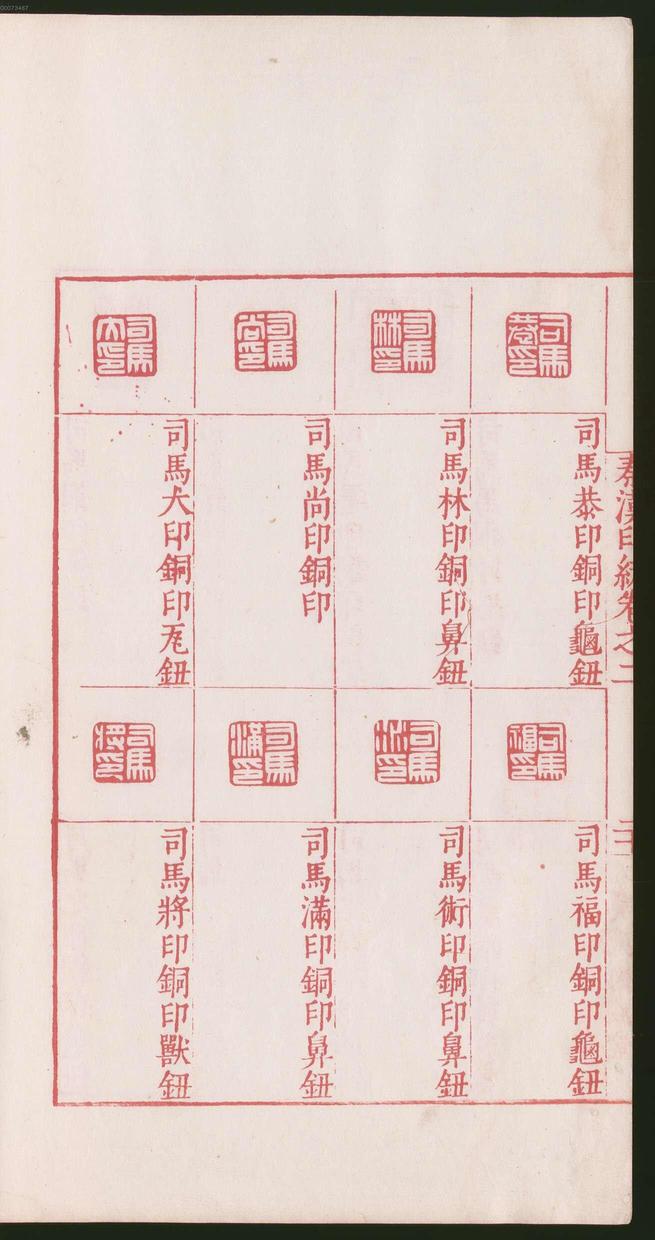 00073467
秦漢印統卷之二
司馬恭印
司馬恭印銅印龜鈕
司馬林印
司馬林印銅印鼻鈕
司馬尚印
司馬尚印銅印
司馬犬印
司馬犬印銅印瓦鈕
司馬福印
司馬福印銅印龜鈕
司馬術印銅印鼻鈕
司馬滿印
司馬滿印銅印鼻鈕
司馬將印
司馬將印銅印獸鈕